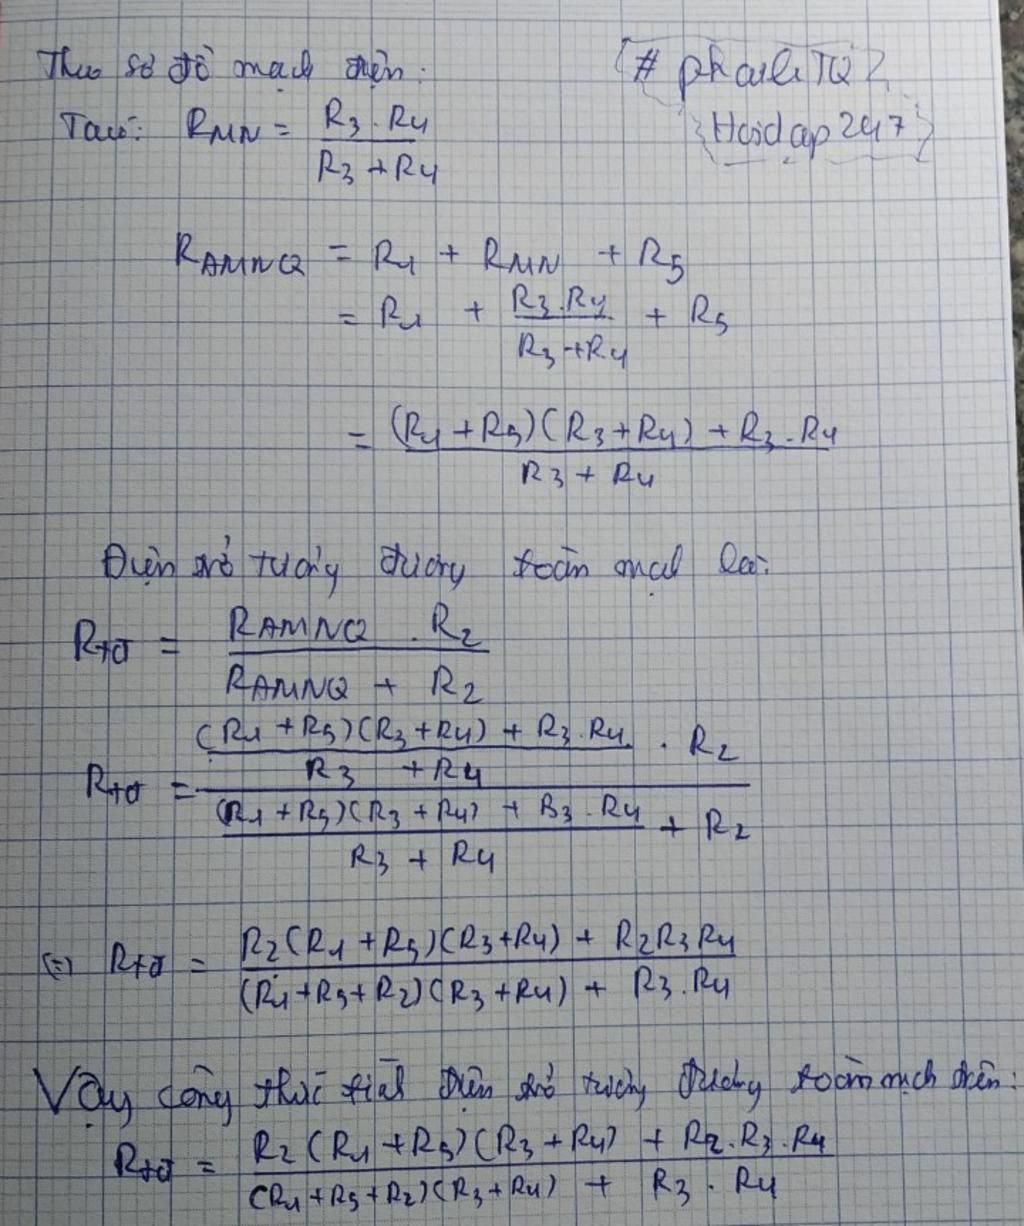 Theo sơ đồ mạch điện:
# phanliTQ2
Hoidap247
Ta có: RMN = R3 . R4 / R3 + R4
RAMNQ = R1 + RMN + R5
= R1 + R3.R4 / R3+R4 + R5
= (R1 + R5)(R3+R4) + R3.R4 / R3 + R4
Điện trở tương đương toàn mạch là:
Rtđ = RAMNQ . R2 / RAMNQ + R2
Rtđ = (R1 + R5)(R3+R4) + R3.R4 / R3 + R4 . R2 / (R1 + R5)(R3 + R4) + R3 . R4 / R3 + R4 + R2
(=) Rtđ = R2(R1 + R5)(R3+R4) + R2R3R4 / (R1+R5+R2)(R3+R4) + R3.R4
Vậy công thức tính điện trở tương đương toàn mạch điện:
Rtđ = R2(R1 + R5)(R3 + R4) + R2.R3.R4 / (R1+R5+R2)(R3+R4) + R3 . R4